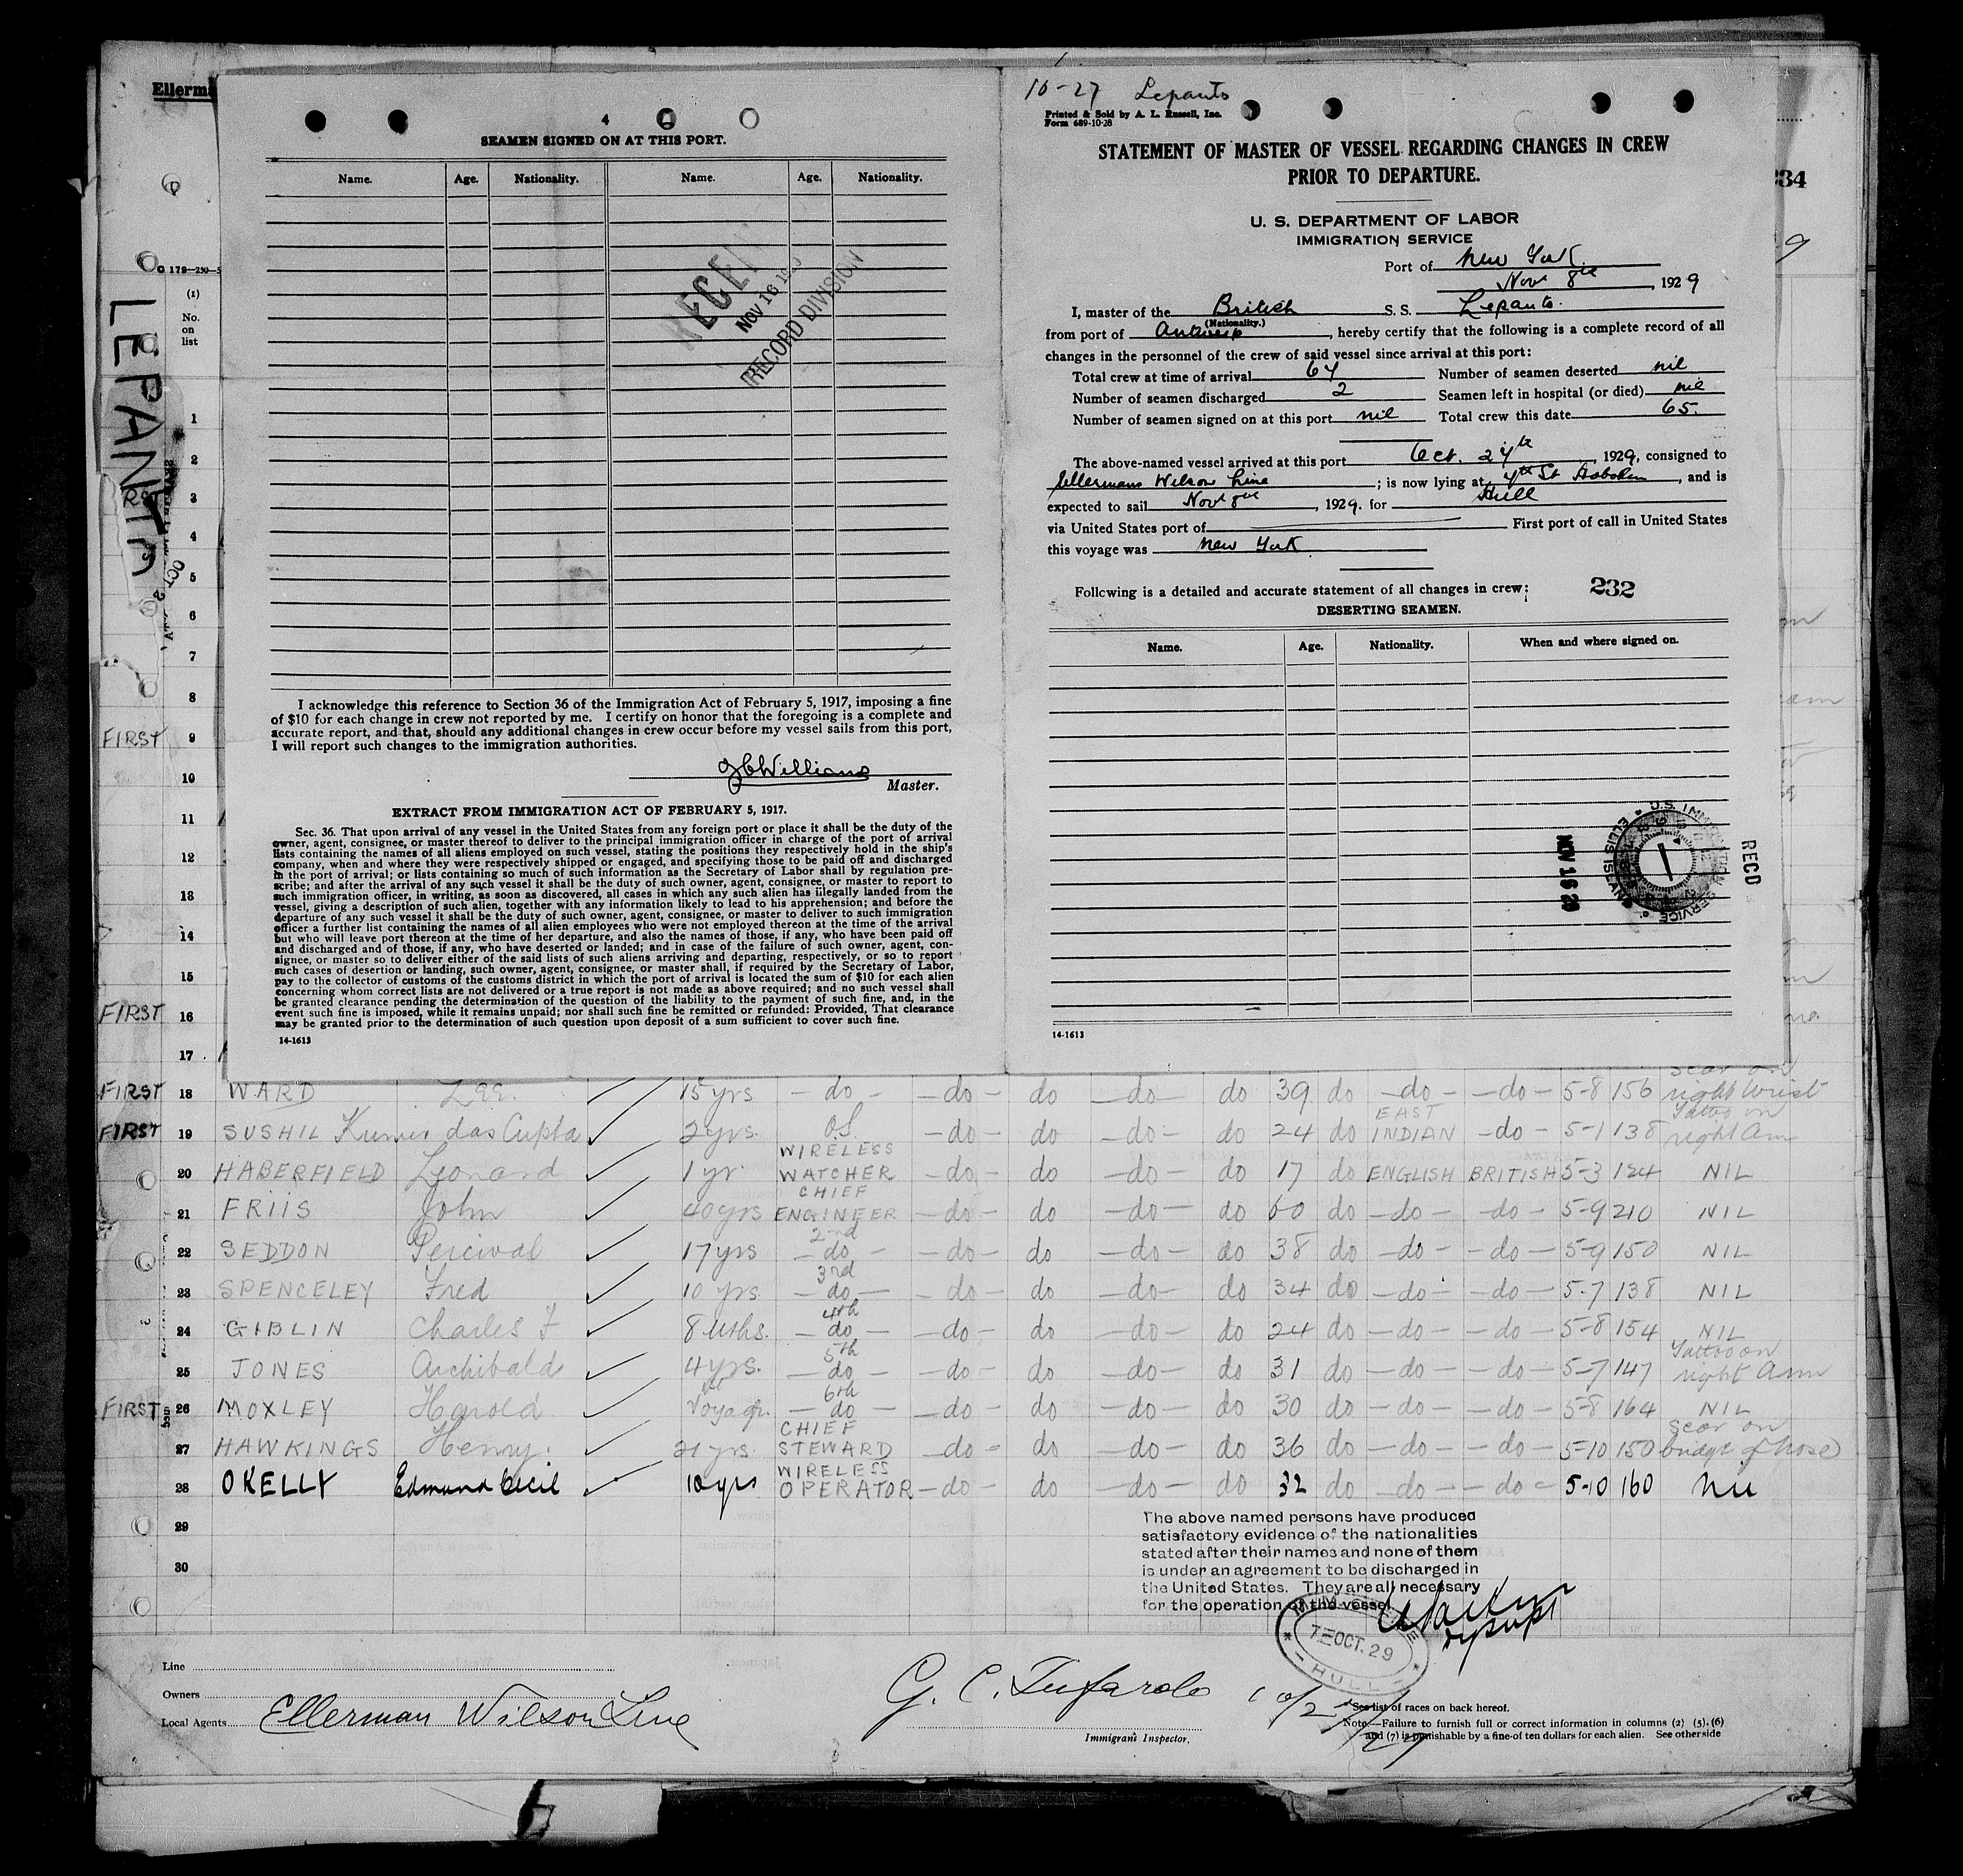 Ellerm
4
SEAMEN SIGNED ON AT THIS PORT.
Name. Age. Nationality. Name. Age. Nationality.
NOV 16
RECORD DIVISION
I acknowledge this reference to Section 36 of the Immigration Act of February 5, 1917, imposing a fine
of $10 for each change in crew not reported by me. I certify on honor that the foregoing is a complete and
accurate report, and that, should any additional changes in crew occur before my vessel sails from this port,
I will report such changes to the immigration authorities.
G C Williams
Master.
EXTRACT FROM IMMIGRATION ACT OF FEBRUARY 5, 1917.
Sec. 36. That upon arrival of any vessel in the United States from any foreign port or place it shall be the duty of the
owner, agent, consignee, or master thereof to deliver to the principal immigration officer in charge of the port of arrival
lists containing the names of all aliens employed on such vessel, stating the positions they respectively hold in the ship's
company, when and where they were respectively shipped or engaged, and specifying those to be paid off and discharged
in the port of arrival; or lists containing so much of such information as the Secretary of Labor shall by regulation pre-
scribe; and after the arrival of any such vessel it shall be the duty of such owner, agent, consignee, or master to report to
such immigration officer, in writing, as soon as discovered, all cases in which any such alien has illegally landed from the
vessel, giving a description of such alien, together with any information likely to lead to his apprehension; and before the
departure of any such vessel it shall be the duty of such owner, agent, consignee, or master to deliver to such immigration
officer a further list containing the names of all alien employees who were not employed thereon at the time of the arrival
but who will leave port thereon at the time of her departure, and also the names of those, if any, who have been paid off
and discharged and of those, if any, who have deserted or landed; and in case of the failure of such owner, agent, con-
signee, or master so to deliver either of the said lists of such aliens arriving and departing, respectively, or so to report
such cases of desertion or landing, such owner, agent, consignee, or master shall, if required by the Secretary of Labor,
pay to the collector of customs of the customs district in which the port of arrival is located the sum of $10 for each alien
concerning whom correct lists are not delivered or a true report is not made as above required; and no such vessel shall
be granted clearance pending the determination of the question of the liability to the payment of such fine, and, in the
event such fine is imposed, while it remains unpaid; nor shall such fine be remitted or refunded: Provided, That clearance
may be granted prior to the determination of such question upon deposit of a sum sufficient to cover such fine.
14-1613
10-27 Lepanto
Printed & Sold by A. L. Russell, Inc.
Form 689-10-28
STATEMENT OF MASTER OF VESSEL REGARDING CHANGES IN CREW
PRIOR TO DEPARTURE.
U. S. DEPARTMENT OF LABOR
IMMIGRATION SERVICE
Port of New York.
Nov 8th, 1929
I, master of the British S. S. Lepanto.
(Nationality.)
from port of Antwerp, hereby certify that the following is a complete record of all
changes in the personnel of the crew of said vessel since arrival at this port:
Total crew at time of arrival 67 Number of seamen deserted nil
Number of seamen discharged 2 Seamen left in hospital (or died) nil
Number of seamen signed on at this port nil Total crew this date 65.
The above-named vessel arrived at this port Oct. 27th, 1929, consigned to
Ellermans Wilson Line; is now lying at 7th St Hoboken, and is
expected to sail Nov 8th, 1929. for Hull
via United States port of First port of call in United States
this voyage was New York
Following is a detailed and accurate statement of all changes in crew: 232
DESERTING SEAMEN.
Name. Age. Nationality. When and where signed on.
U.S. IMMIGRATION SERVICE ELLIS ISLAND
NOV 16 29
RECD
14-1613
234
9
G 179-250-5
(1)
No.
on
list
LEPANTO
1
2
3
4
5
6
7
8
FIRST 9
10
11
12
13
14
15
FIRST 16
17
FIRST 18 WARD Lee. 15 yrs -do- -do- do -do- do 39 do -do- -do- 5-8 156 scar on right wrist
FIRST 19 SUSHIL Kumar das Gupta 2 yrs. O.S. -do- do -do- do 24 do EAST INDIAN -do- 5-1 138 Tattoo on right arm
20 HABERFIELD Leonard 1 yr. WIRELESS WATCHER -do- do -do- do 17 do ENGLISH BRITISH 5-3 124 NIL
21 FRIIS John 40 yrs CHIEF ENGINEER -do- do -do- do 60 do -do- -do- 5-9 210 NIL
22 SEDDON Percival 17 yrs 2nd -do- -do- do -do- do 38 do -do- -do- 5-9 150 NIL
23 SPENCELEY Fred 10 yrs 3rd -do- -do- do -do- do 34 do -do- -do- 5-7 138 NIL
24 GIBLIN Charles F 8 mths. 4th -do- -do- do -do- do 24 do -do- -do- 5-8 154 NIL
25 JONES Archibald 4 yrs. 5th -do- -do- do -do- do 31 do -do- -do- 5-7 147 Tattoo on right arm
FIRST 26 MOXLEY Harold 1st Voyage. 6th -do- -do- do -do- do 30 do -do- -do- 5-8 164 NIL
27 HAWKINGS Henry. 21 yrs. CHIEF STEWARD -do- do -do- do 36 do -do- -do- 5-10 150 scar on bridge of nose
28 OKELLY Edmund Cecil 10 yrs WIRELESS OPERATOR -do- do -do- do 32 do -do- -do- 5-10 160 Nil
29
30
The above named persons have produced
satisfactory evidence of the nationalities
stated after their names and none of them
is under an agreement to be discharged in
the United States. They are all necessary
for the operation of the vessel
7 OCT. 29
HULL
Line
Owners
Local Agents Ellerman Wilson Line
G. C. Tufarolo 10/27/29
Immigrant Inspector.
*See list of races on back hereof.
Note.—Failure to furnish full or correct information in columns (2) (5), (6)
and (7) is punishable by a fine of ten dollars for each alien. See other side